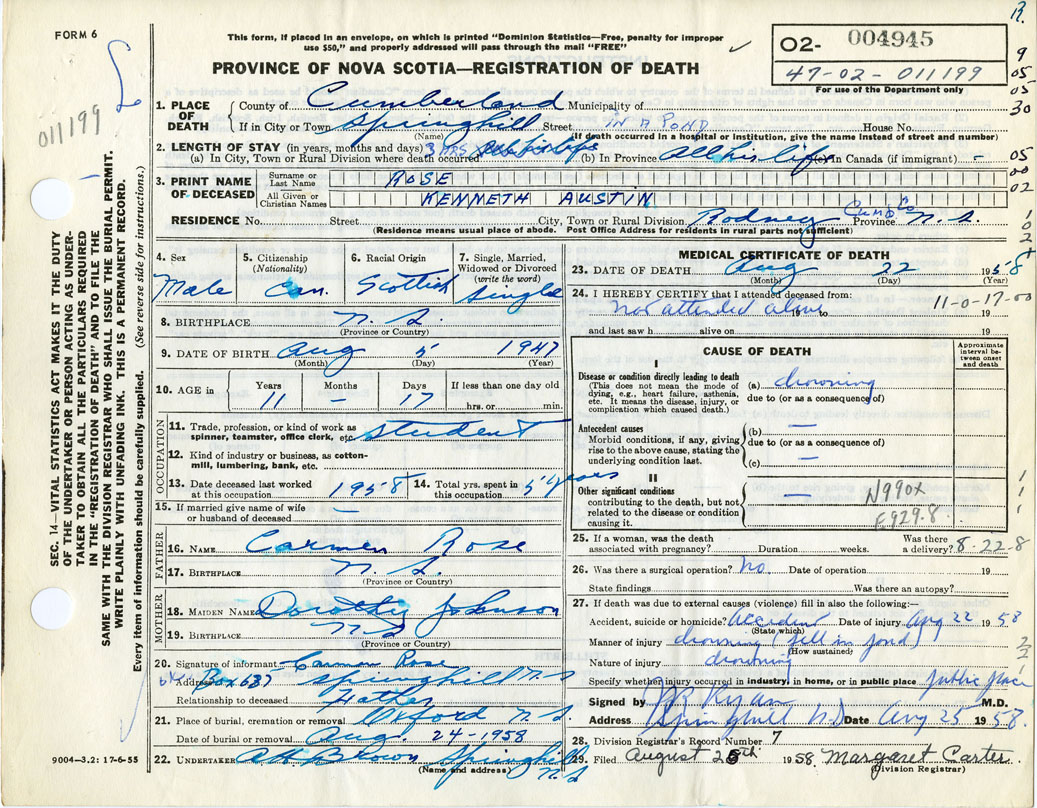 FORM 6
This form, if placed in an envelope, on which is printed "Dominion Statistics—Free, penalty for improper
use $50," and properly addressed will pass through the mail "FREE"
PROVINCE OF NOVA SCOTIA—REGISTRATION OF DEATH
R.
O2- 004945
47-02-011199
For use of the Department only
9
05
05
30
05
00
02
1
0
2
011199
SEC. 14—VITAL STATISTICS ACT MAKES IT THE DUTY
OF THE UNDERTAKER OR PERSON ACTING AS UNDER-
TAKER TO OBTAIN ALL THE PARTICULARS REQUIRED
IN THE "REGISTRATION OF DEATH" AND TO FILE THE
SAME WITH THE DIVISION REGISTRAR WHO SHALL ISSUE THE BURIAL PERMIT.
WRITE PLAINLY WITH UNFADING INK. THIS IS A PERMANENT RECORD.
Every item of information should be carefully supplied. (See reverse side for instructions.)
1. PLACE OF DEATH County of Cumberland Municipality of
If in City or Town Springhill Street IN A POND House No.
(Name) (If death occurred in a hospital or institution, give the name instead of street and number)
2. LENGTH OF STAY (in years, months and days)
(a) In City, Town or Rural Division where death occurred 3 HRS (b) In Province All his life (c) in Canada (if immigrant) -
3. PRINT NAME OF DECEASED
Surname or Last Name ROSE
All Given or Christian Names KENNETH AUSTIN
RESIDENCE No. Street City, Town or Rural Division Rodney Cumb Co Province N.S.
(Residence means usual place of abode. Post Office Address for residents in rural parts not sufficient)
4. Sex
Male
5. Citizenship
(Nationality)
Can.
6. Racial Origin
Scottish
7. Single, Married,
Widowed or Divorced
(write the word)
Single
8. BIRTHPLACE N.S.
(Province or Country)
9. DATE OF BIRTH Aug 5 1947
(Month) (Day) (Year)
10. AGE in Years Months Days If less than one day old
11 — 17 hrs. or min.
OCCUPATION
11. Trade, profession, or kind of work as
spinner, teamster, office clerk, etc. Student
12. Kind of industry or business, as cotton-
mill, lumbering, bank, etc.
13. Date deceased last worked
at this occupation 1958
14. Total yrs. spent in
this occupation 5 years
15. If married give name of wife
or husband of deceased —
FATHER
16. NAME Carmen Rose
17. BIRTHPLACE N.S.
(Province or Country)
MOTHER
18. MAIDEN NAME Dorothy Johnson
19. BIRTHPLACE N.S
(Province or Country)
20. Signature of informant Carmen Rose
Address Box 637 Springhill N-S
Relationship to deceased Father
21. Place of burial, cremation or removal Oxford N.S.
Date of burial or removal Aug 24-1958
22. UNDERTAKER Brown Springhill
(Name and address) N.S
9004—3.2: 17-6-55
MEDICAL CERTIFICATE OF DEATH
23. DATE OF DEATH Aug 22 1958
(Month) (Day) (Year)
24. I HEREBY CERTIFY that I attended deceased from: 11-0-17-00
Not attended alone 19 to 19
and last saw h alive on 19
CAUSE OF DEATH
Approximate
interval be-
tween onset
and death
I
Disease or condition directly leading to death
(This does not mean the mode of
dying, e.g., heart failure, asthenia,
etc. It means the disease, injury, or
complication which caused death.)
(a) drowning
due to (or as a consequence of)
Antecedent causes
Morbid conditions, if any, giving
rise to the above cause, stating the
underlying condition last.
(b) —
due to (or as a consequence of)
(c) —
II
Other significant conditions
contributing to the death, but not
related to the disease or condition
causing it.
—
N990X
E929.8
1
1
1
25. If a woman, was the death
associated with pregnancy? Duration weeks. Was there
a delivery? 8-22-8
26. Was there a surgical operation? No. Date of operation 19
State findings Was there an autopsy?
27. If death was due to external causes (violence) fill in also the following:—
Accident, suicide or homicide? Accident Date of injury Aug 22 1958
(State which)
Manner of injury drowning (fell in pond)
(How sustained)
Nature of injury drowning
Specify whether injury occurred in industry, in home, or in public place public place
2
2
1
Signed by Ryan M.D.
Address Springhill N.S Date Aug 25 1958.
28. Division Registrar's Record Number 7
29. Filed August 26th 1958 Margaret Carter
(Division Registrar)